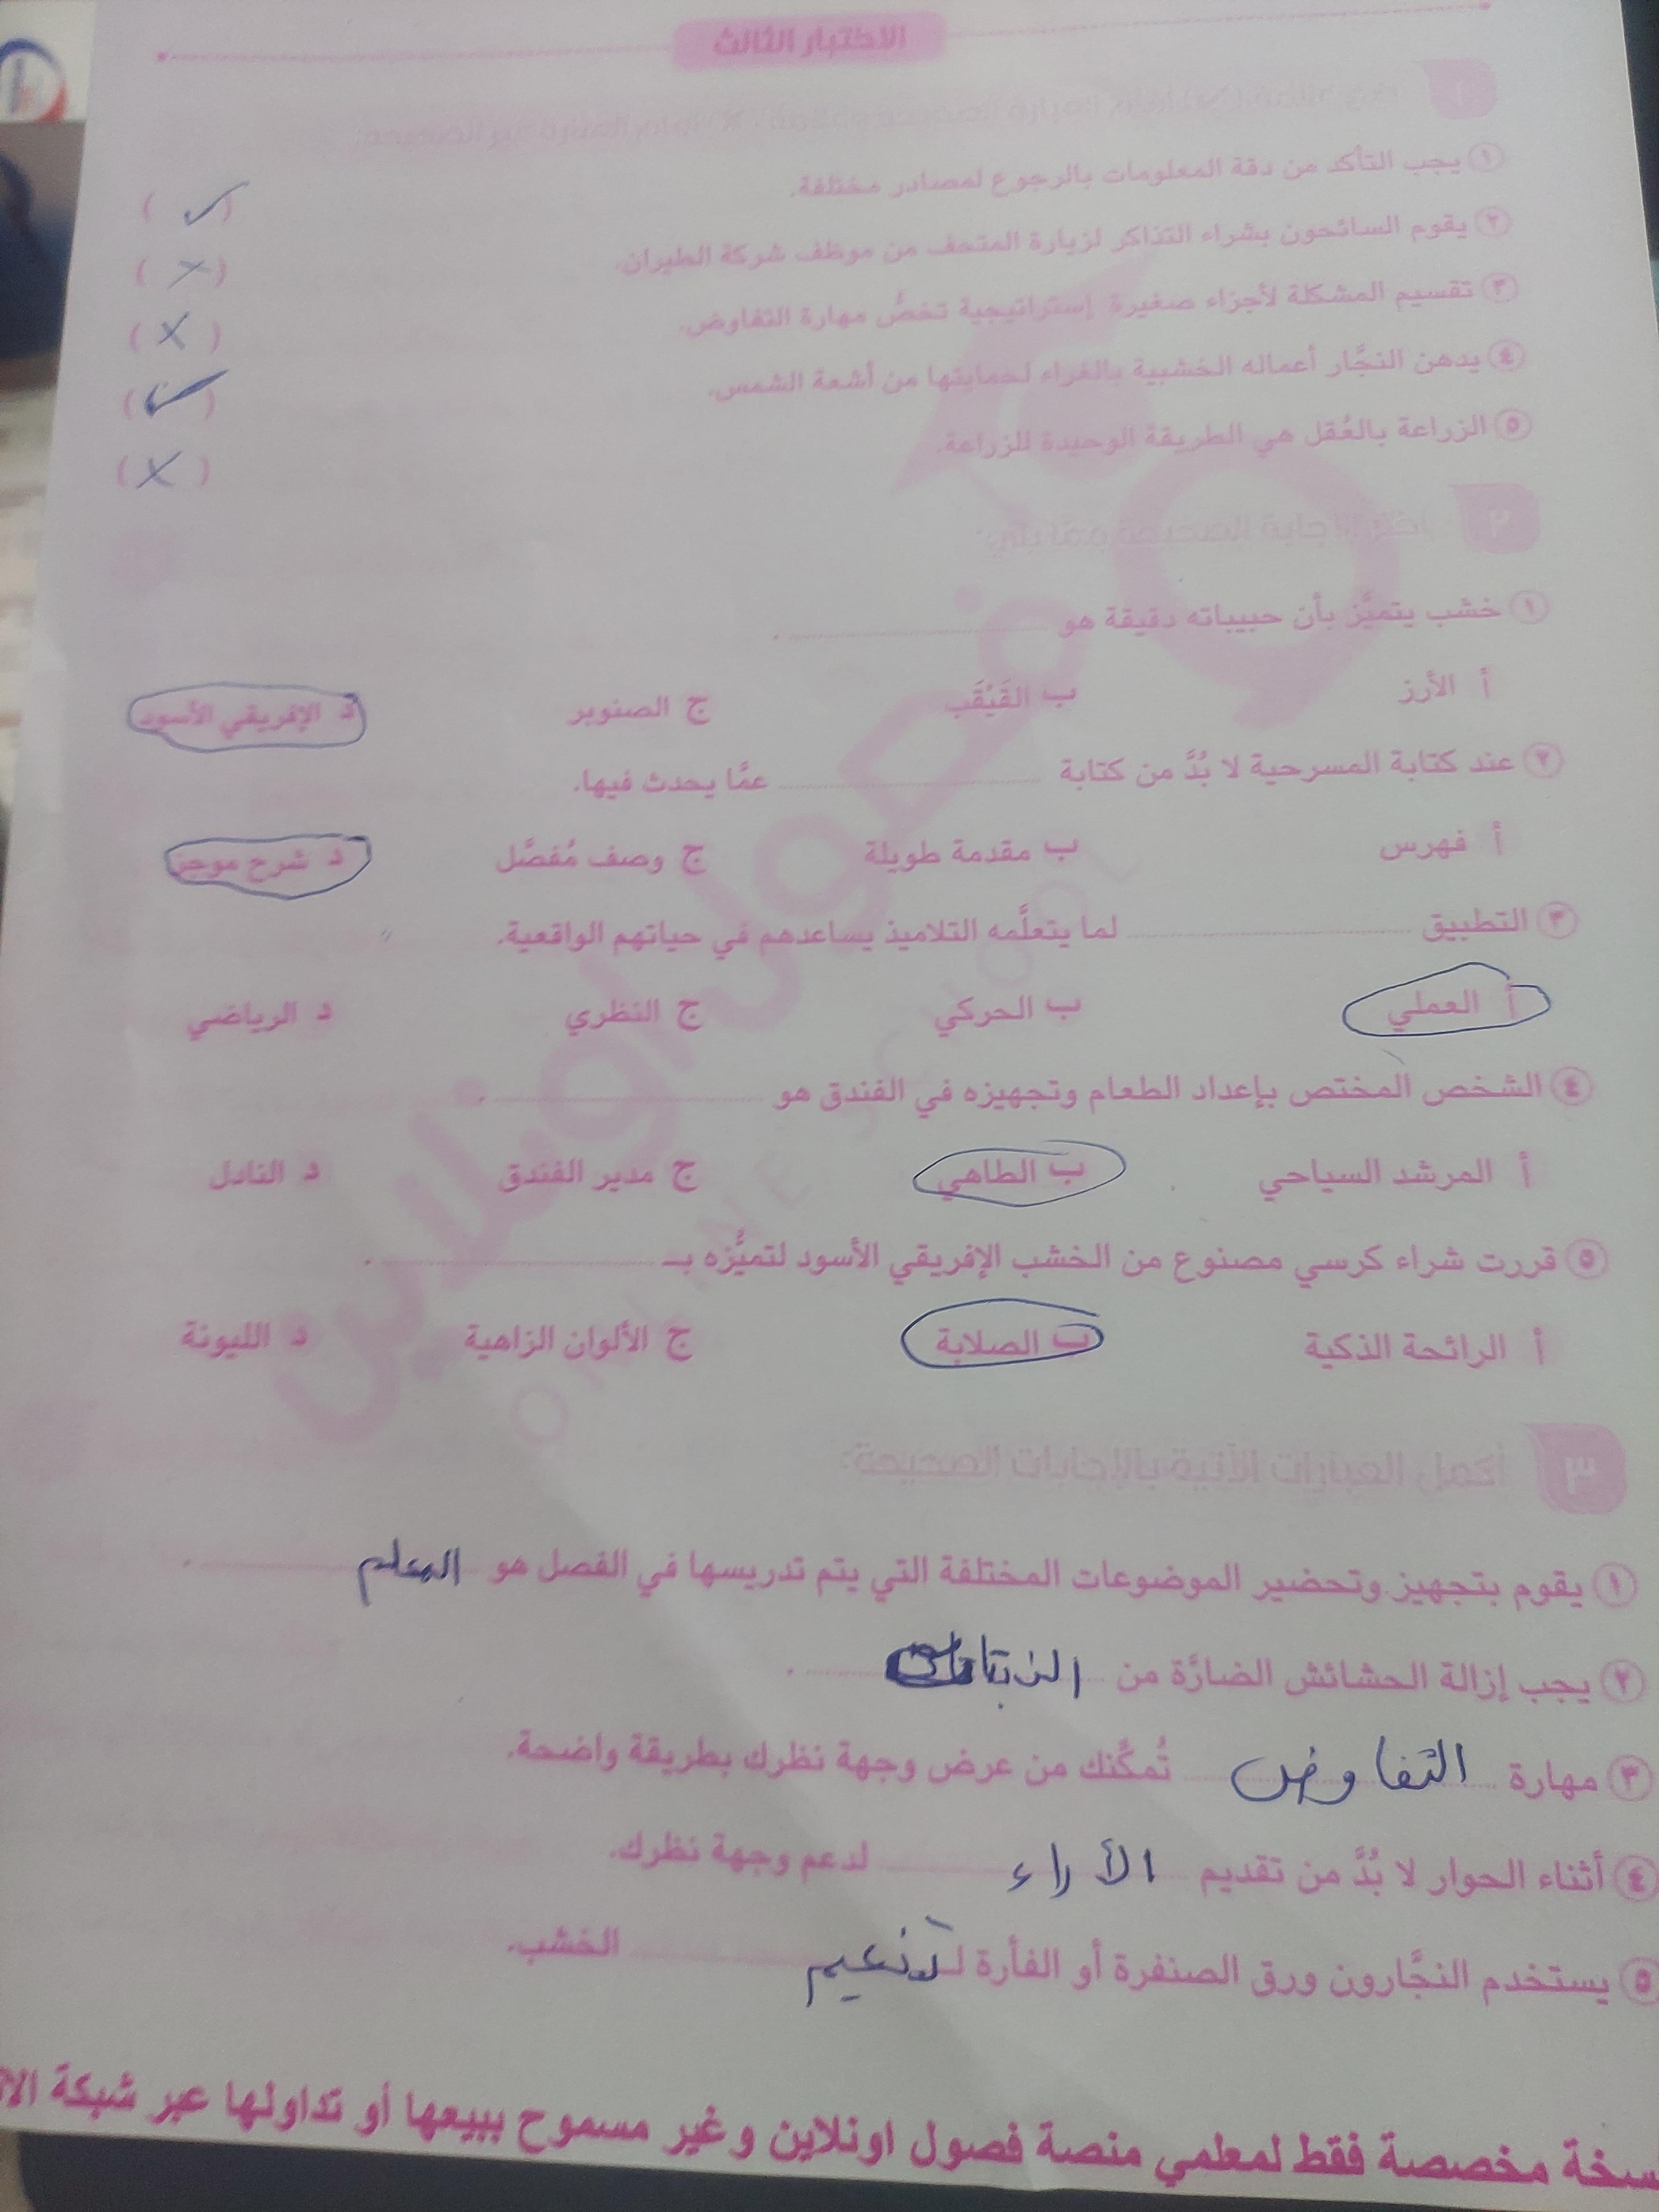 الاختبار الثالث
١
١ يجب التأكد من دقة المعلومات بالرجوع لمصادر مختلفة. ( ✓ )
٢ يقوم السائحون بشراء التذاكر لزيارة المتحف من موظف شركة الطيران. ( × )
٣ تقسيم المشكلة لأجزاء صغيرة إستراتيجية تخصُّ مهارة التفاوض. ( × )
٤ يدهن النجَّار أعماله الخشبية بالغراء لحمايتها من أشعة الشمس. ( ✓ )
٥ الزراعة بالعُقل هي الطريقة الوحيدة للزراعة. ( × )
٢ اختر الإجابة الصحيحة مما يلي:
١ خشب يتميَّز بأن حبيباته دقيقة هو .
أ الأرز ب القَيْقَب ج الصنوبر د الإفريقي الأسود
٢ عند كتابة المسرحية لا بُدَّ من كتابة عمَّا يحدث فيها.
أ فهرس ب مقدمة طويلة ج وصف مُفصَّل د شرح موجز
٣ التطبيق لما يتعلَّمه التلاميذ يساعدهم في حياتهم الواقعية.
أ العملي ب الحركي ج النظري د الرياضي
٤ الشخص المختص بإعداد الطعام وتجهيزه في الفندق هو .
أ المرشد السياحي ب الطاهي ج مدير الفندق د النادل
٥ قررت شراء كرسي مصنوع من الخشب الإفريقي الأسود لتميُّزه بـ .
أ الرائحة الذكية ب الصلابة ج الألوان الزاهية د الليونة
٣ أكمل العبارات الآتية بالإجابات الصحيحة:
١ يقوم بتجهيز وتحضير الموضوعات المختلفة التي يتم تدريسها في الفصل هو المعلم .
٢ يجب إزالة الحشائش الضارَّة من .
٣ مهارة التفاوض تُمكِّنك من عرض وجهة نظرك بطريقة واضحة.
٤ أثناء الحوار لا بُدَّ من تقديم الأراء لدعم وجهة نظرك.
٥ يستخدم النجَّارون ورق الصنفرة أو الفأرة لـ الخشب.
مخصصة فقط لمعلمي منصة فصول اونلاين وغير مسموح ببيعها أو تداولها عبر شبكة
فصول اونلاين
ONLINE SCHOOL